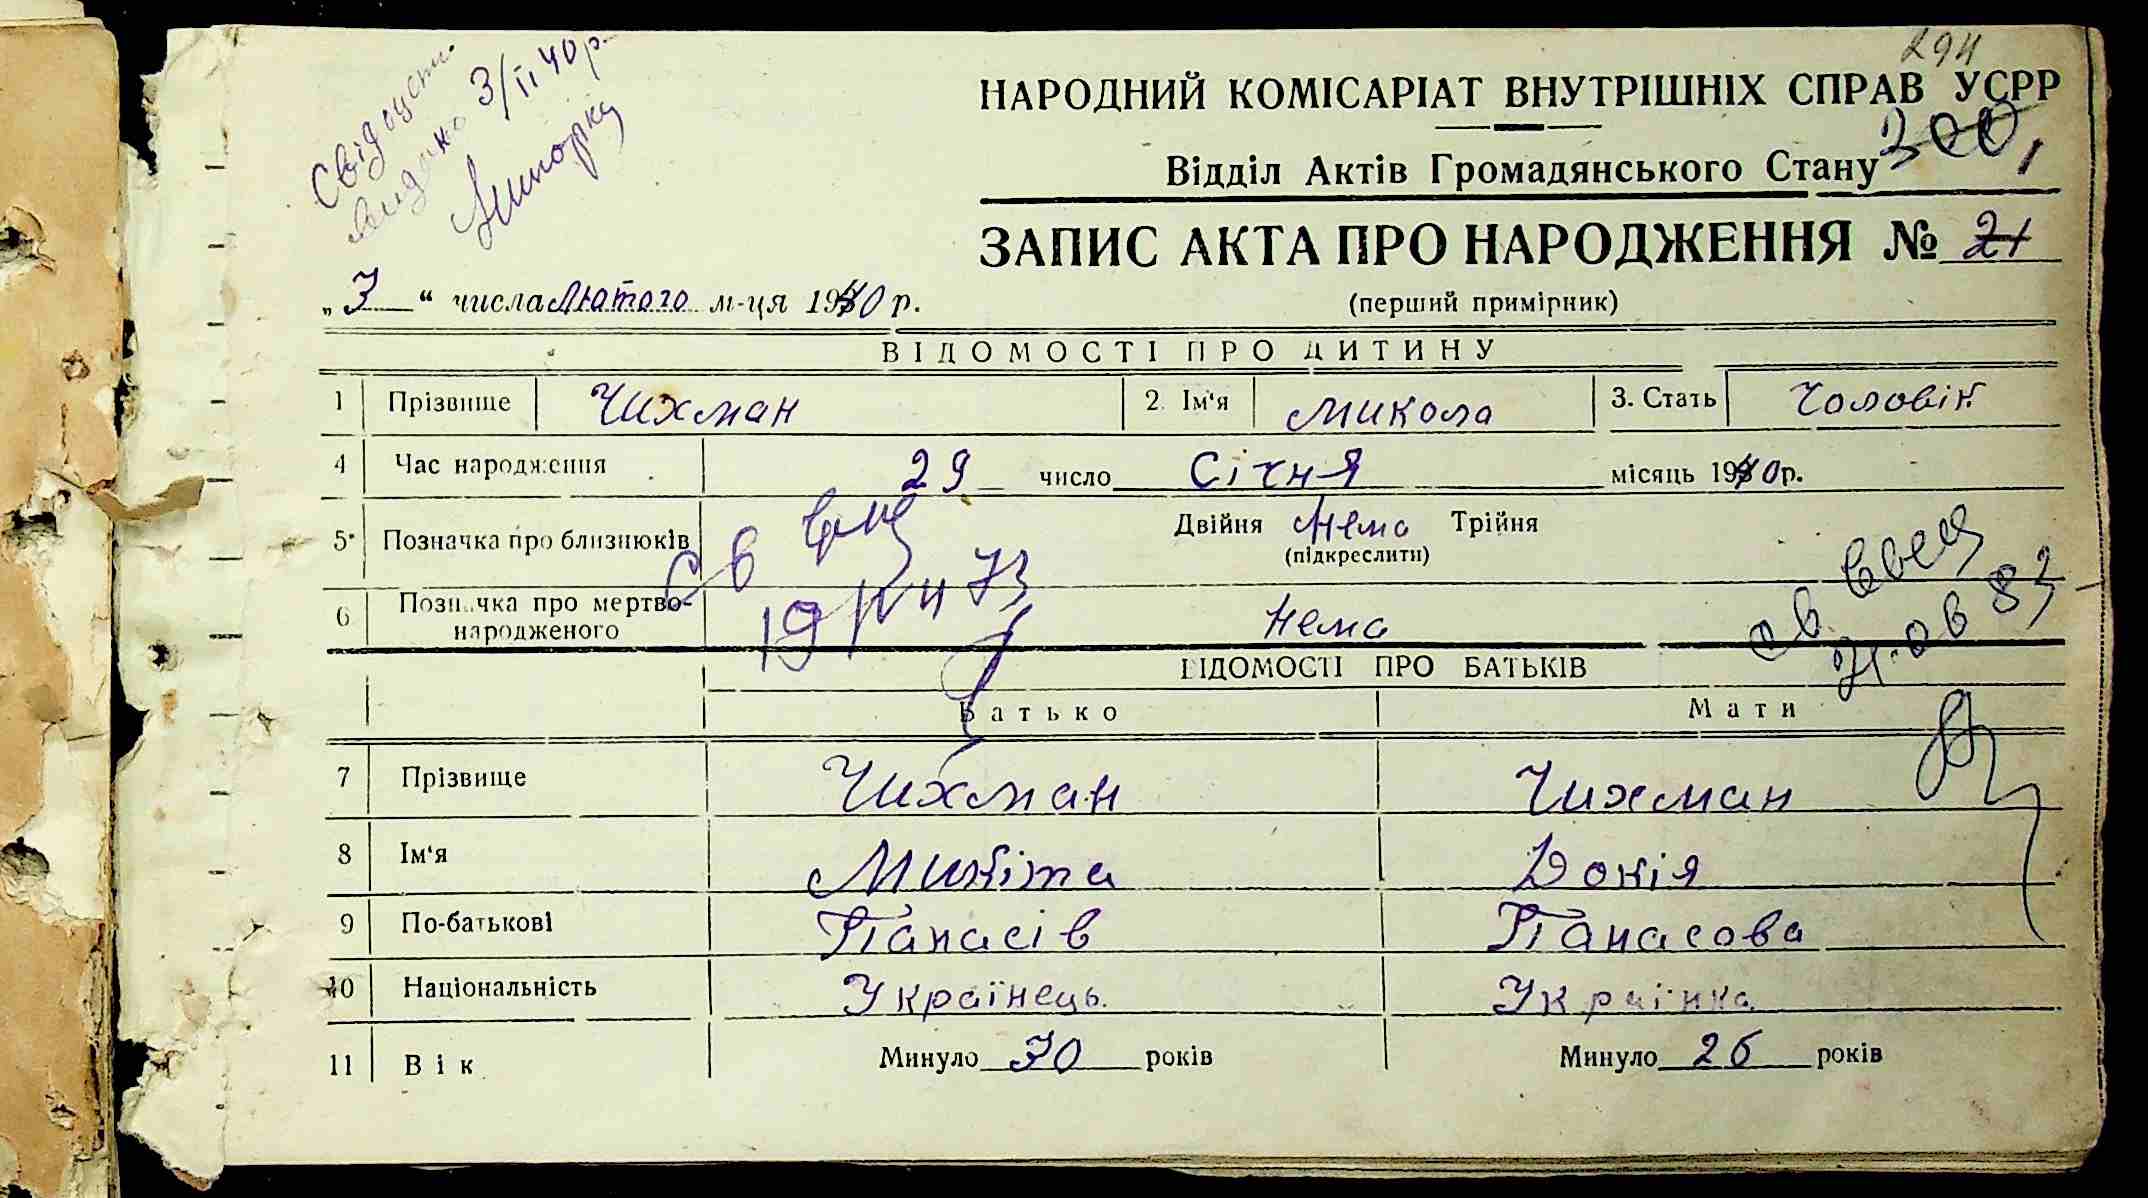 294
Свідоцтв
видано 3/II 40 р.
НАРОДНИЙ КОМІСАРІАТ ВНУТРІШНІХ СПРАВ УСРР
300
Відділ Актів Громадянського Стану
ЗАПИС АКТА ПРО НАРОДЖЕННЯ № 21
„3“ числа Лютого м-ця 1940 р.
(перший примірник)
ВІДОМОСТІ ПРО ДИТИНУ
1 Прізвище Чихман 2. Ім'я Микола 3. Стать Чоловік
4 Час народження 29 число Січня місяць 1940 р.
5 Позначка про близнюків Двійня Нема Трійня
(підкреслити)
6 Позначка про мертво-
народженого Нема
19 IV 73
св
ВІДОМОСТІ ПРО БАТЬКІВ
Батько Мати
7 Прізвище Чихман Чихман
8 Ім'я Микіта Докія
9 По-батькові Панасів Панасова
10 Національність Українець Українка
11 Вік Минуло 30 років Минуло 26 років